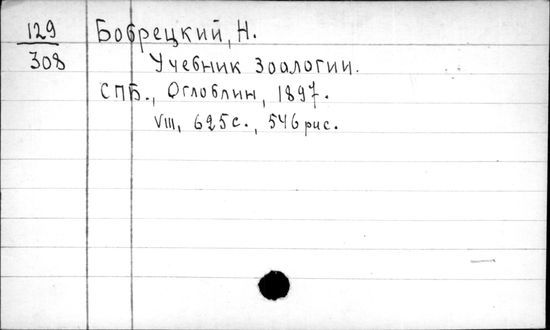 129 Бобрецкий, Н.
308 Учебник Зоологии.
СПБ., Оглоблин, 1897.
VIII, 625с., 546 рис.